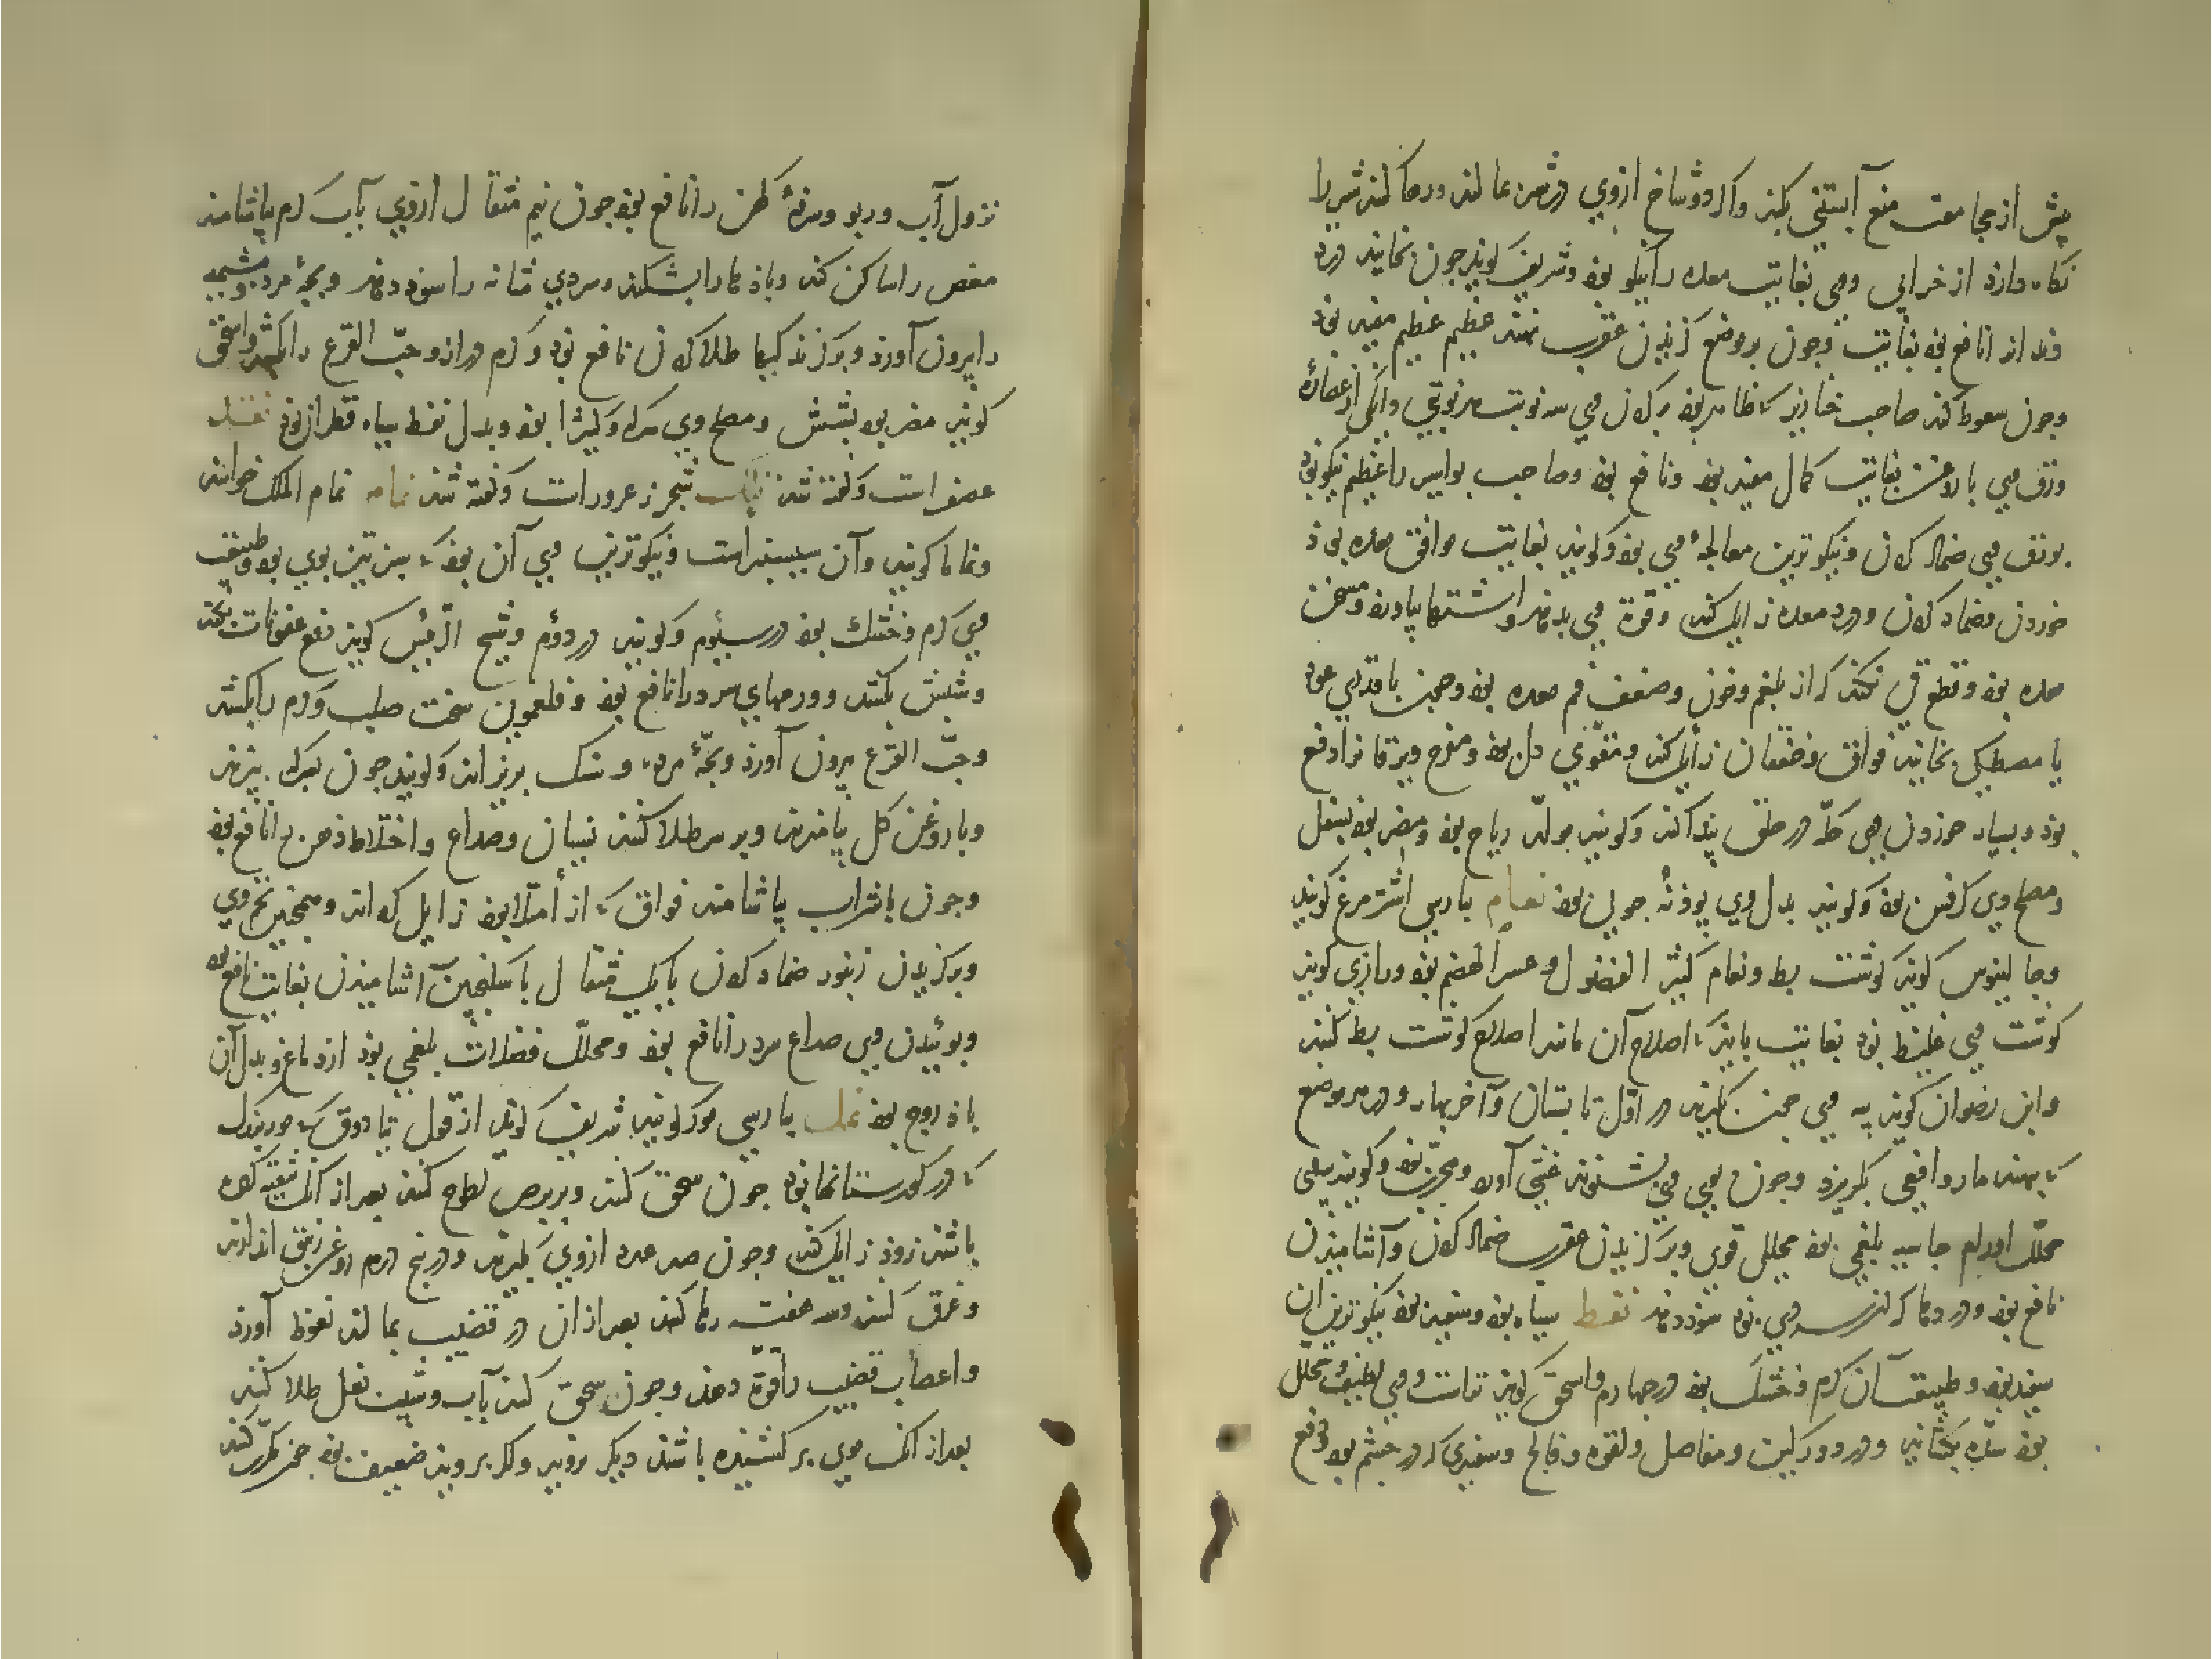 پیش از مجامعت منع آبستنی بکند واکر دو شاخ ازوی در شیر بمالند ورها کنند شیر را
نکاه دارد از خرابی وهی بغایت معده را نیکو بود وشریف کویند چون بخایند درد
دندان را نافع بود بغایت وچون بر موضع کزیدن عقرب نهند عظیم عظیم مفید بود
وچون سعوط کند صاحب خنازیر که ظاهر بود برکدن می سه نوبت هر نوبتی دانکی از عصارهٔ
ورق می با روغن بغایت کمال مفید بود ونافع بود وصاحب بواسیر را عظیم نیکو بود
بورق می ضماد کردن ونیکوترین معالجهٔ می بود وکویند بغایت موافق معده بود
خوردن وضماد کردن ودرد معده زایل کند وقوة می بدهد واشتها بیاورد ومسخن
معده بود وقطع قی بکند که از بلغم وخون وضعف فم معده بود وچون با قدری عود
یا مصطکی بخایند فواق وخفقان زایل کند ومقوی دل بود ومفرح ویرقان را دافع
بود وبسیار خوردن می حکه در حلق پیدا کند وکویند مولد ریاح بود ومضر بود بسفل
ومصلح وی کرفس بود وکویند بدل وی پودنهٔ جویی بود نعام بپارسی اشتر مرغ کویند
وجالینوس کوید کوشت بط ونعام کثیر الفضول وعسر الهضم بود ورازی کوید
کوشت می غلیظ بود بغایت باید که اصلاح آن مانند اصلاح کوشت بط کنند
وابن رضوان کوید پیه می چون بکیرند در اول تابستان وآخر بهار ودر هر موضع
که بنهند مار وافعی بکریزد وچون بوی می بشنوند غشی آورد ومجرب بود وکویند پیه می
محلل اورام جاسیه بلغمی بود محللی قوی وبر کزیدن عقرب ضماد کردن وآشامیدن
نافع بود ودردها که از سردی بود سود دهد نفط سیاه بود وسفید بود نیکوترین آن
سفید بود وطبیعت آن کرم وخشک بود در چهارم واسحق کوید تر است ومی لطیف ومحلل
بود سده بکشاید ودرد ورکین ومفاصل ولقوه وفالج وسفیدی که در چشم بود ودفع
نزول آب وربو وسرفهٔ کهن را نافع بود چون نیم مثقال ازوی بآب کرم بیاشامند
مغص را ساکن کند وبادها را بشکند وسردی مثانه را سود دهد وبچهٔ مرده ومشیمه
را بیرون آورد وبر کزندکیها طلا کردن نافع بود وکرم دراز وحب القرع را بکشد واسحق
کوید مضر بود بشش ومصلح وی سرکه وکثیرا بود وبدل نفط سیاه قطران بود نقد
عصفر است وکفته شد نلک شجر زعرور است وکفته شد نمام نمام الملک خوانند
ونماما کویند وآن سیسنبر است ونیکوترین می آن بود که سبز تیز بوی بود وطبیعت
می کرم وخشک بود در سیوم وکویند در دوم وشیخ الرئیس کوید دفع عفونات بکند
وشپش بکشد وورمهای سرد را نافع بود وفلغمونی سخت صلب وکرم را بکشد
وحب القرع بیرون آورد وبچهٔ مرده وسنک بریزاند وکویند چون بسرکه بپزند
وبا روغن کل بیامیزند وبر سر طلا کنند نسیان وصداع واختلاط ذهن را نافع بود
وچون با شراب بیاشامند فواق که از امتلا بود زایل کرداند وهمچنین تخم وی
وبر کزیدن زنبور ضماد کردن با یک مثقال با سکنجبین آشامیدن بغایت نافع بود
وبوئیدن می صداع سرد را نافع بود ومحلل فضلات بلغمی بود از دماغ وبدل آن
باذروج بود نمل بپارسی مور کویند شریف کوید از قول تیادوق که مور بزرک
که در کورستانها بود چون سحق کنند وبر برص لطوخ کنند بعد از آنک تنقیه کرده
باشند زود زایل کند وچون صد عدد ازوی بکیرند ودر پنج درم روغن زنبق اندازند
وغرق کنند وسه هفته رها کنند بعد از آن در قضیب بمالند نعوظ آورد
واعصاب قضیب را قوة دهد وچون سحق کنند بآب وشیب بغل طلا کنند
بعد از آنک موی بر کشیده باشند دیکر نروید وکر بروید ضعیف بود چون مکرر کنند